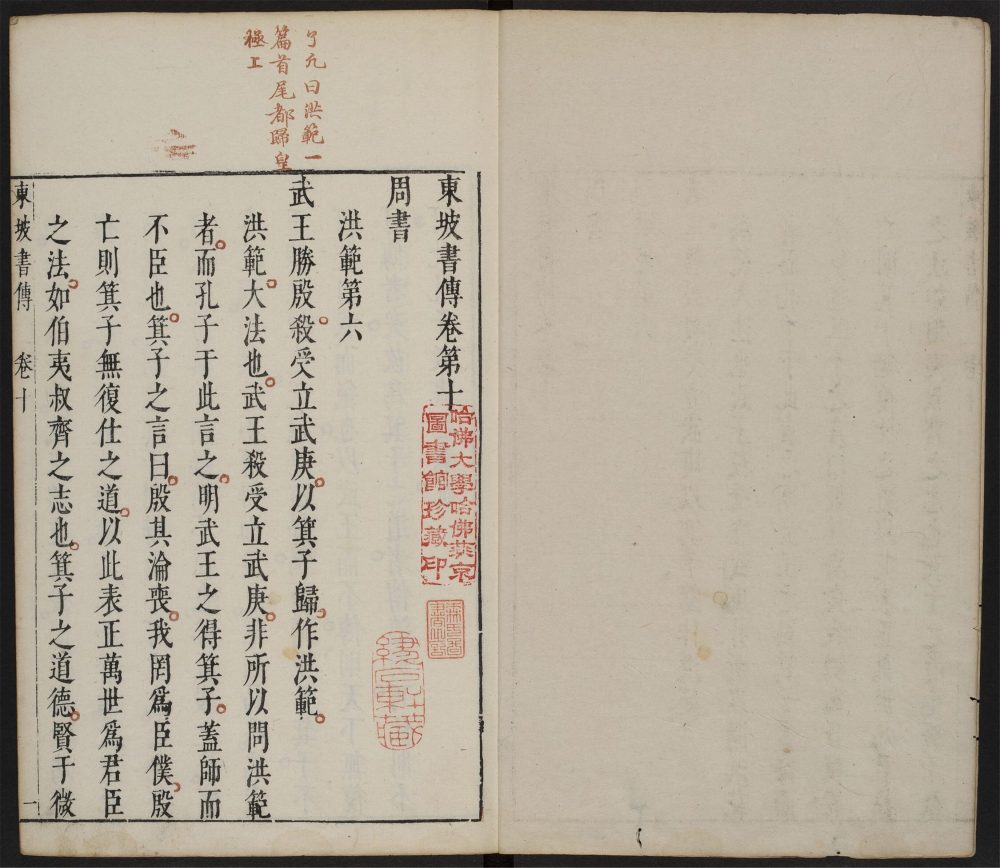 了凡曰洪範一
篇首尾都歸皇
極上
東坡書傳卷第十
周書
洪範第六
武王勝殷殺受立武庚以箕子歸作洪範
洪範大法也武王殺受立武庚非所以問洪範
者而孔子于此言之明武王之得箕子蓋師而
不臣也箕子之言曰殷其淪喪我罔爲臣僕殷
亡則箕子無復仕之道以此表正萬世爲君臣
之法如伯夷叔齊之志也箕子之道德賢于微
東坡書傳 卷十 一
哈佛大學哈佛燕京
圖書館珍藏印